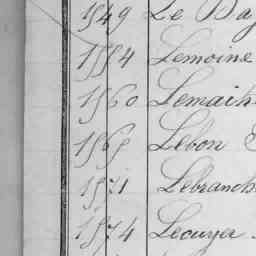 1549 Le Ba
1554 Lemoine
1560 Lemait
1565 Lebon
1571 Lebranch
1574 Lecuyer